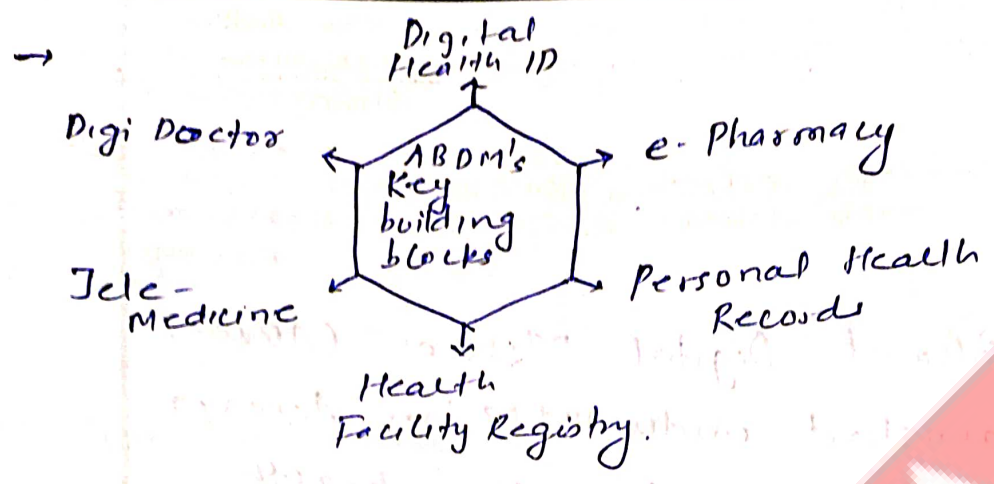 Digital
Health ID
Digi Doctor
e-Pharmacy
ABDM's
Key
building
blocks
Tele-
Medicine
Personal Health
Records
Health
Facility Registry.